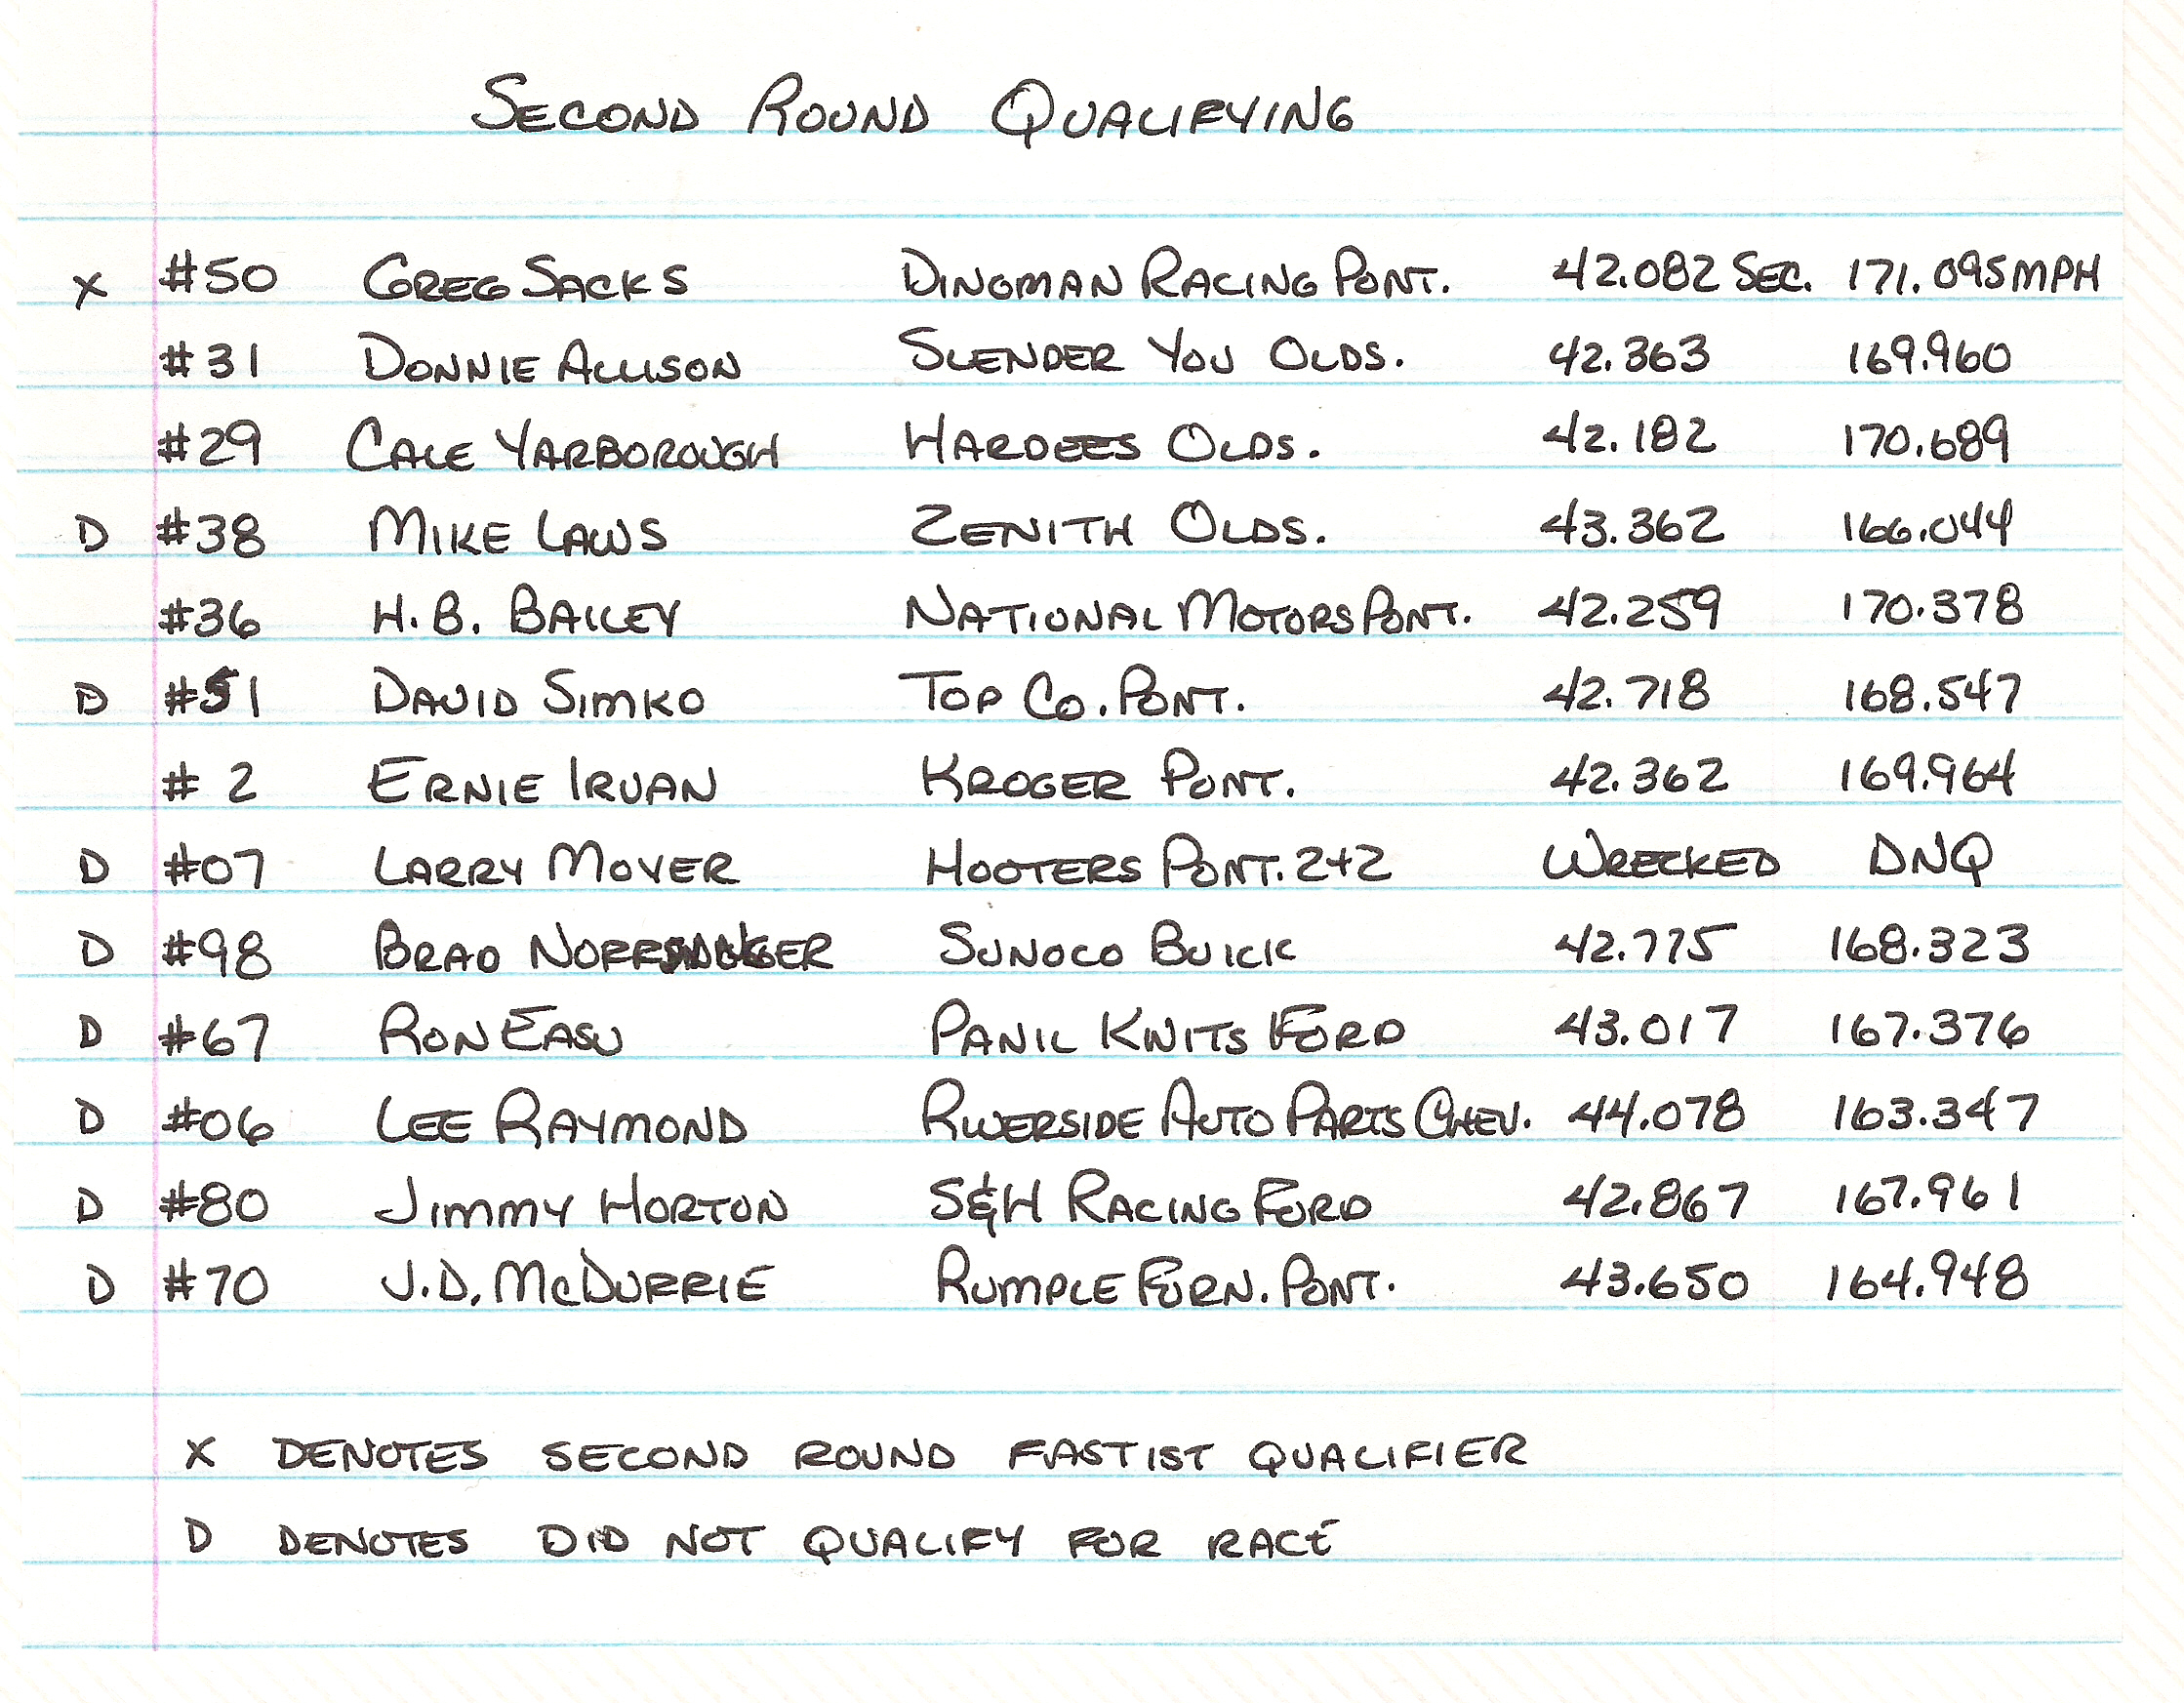 SECOND ROUND QUALIFYING
X #50 GREG SACKS DINGMAN RACING PONT. 42.082 SEC. 171.095 MPH
#31 DONNIE ALLISON SLENDER YOU OLDS. 42.363 169.960
#29 CALE YARBOROUGH HARDEES OLDS. 42.182 170.689
D #38 MIKE LAWS ZENITH OLDS. 43.362 166.044
#36 H.B. BAILEY NATIONAL MOTORS PONT. 42.259 170.378
D #51 DAVID SIMKO TOP CO. PONT. 42.718 168.547
# 2 ERNIE IRVAN KROGER PONT. 42.362 169.964
D #07 LARRY MOYER HOOTERS PONT. 2+2 WRECKED DNQ
D #98 BRAD SUNOCO BUICK 42.775 168.323
D #67 RON EASU PANIL KNITS FORD 43.017 167.376
D #06 LEE RAYMOND RIVERSIDE AUTO PARTS CHEV. 44.078 163.347
D #80 JIMMY HORTON S&H RACING FORD 42.867 167.961
D #70 J.D. MCDURRIE RUMPLE FURN. PONT. 43.650 164.948
X DENOTES SECOND ROUND FASTIST QUALIFIER
D DENOTES DID NOT QUALIFY FOR RACE